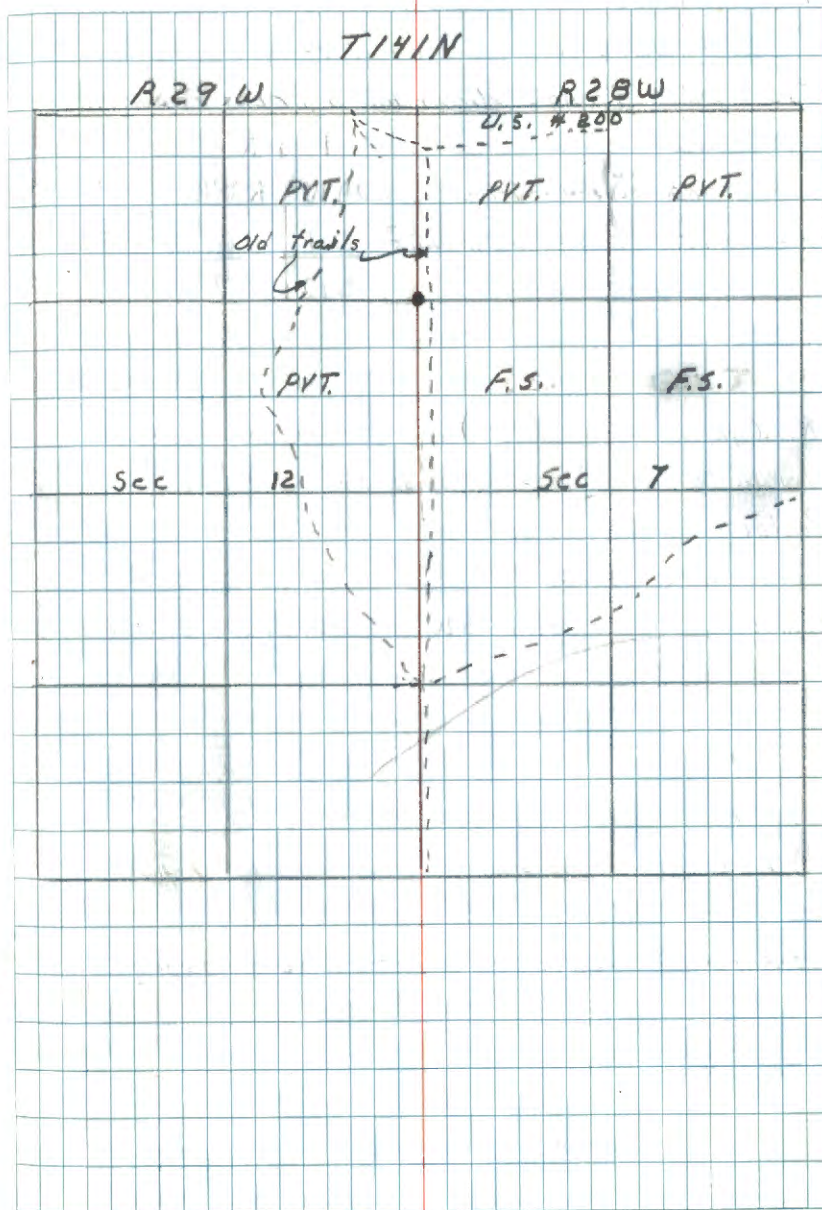 T141N
R.29.W R28W
U.S. # 200
PVT. PVT. PVT.
Old trails
PVT. F.S. F.S.
Sec 12 Sec 7